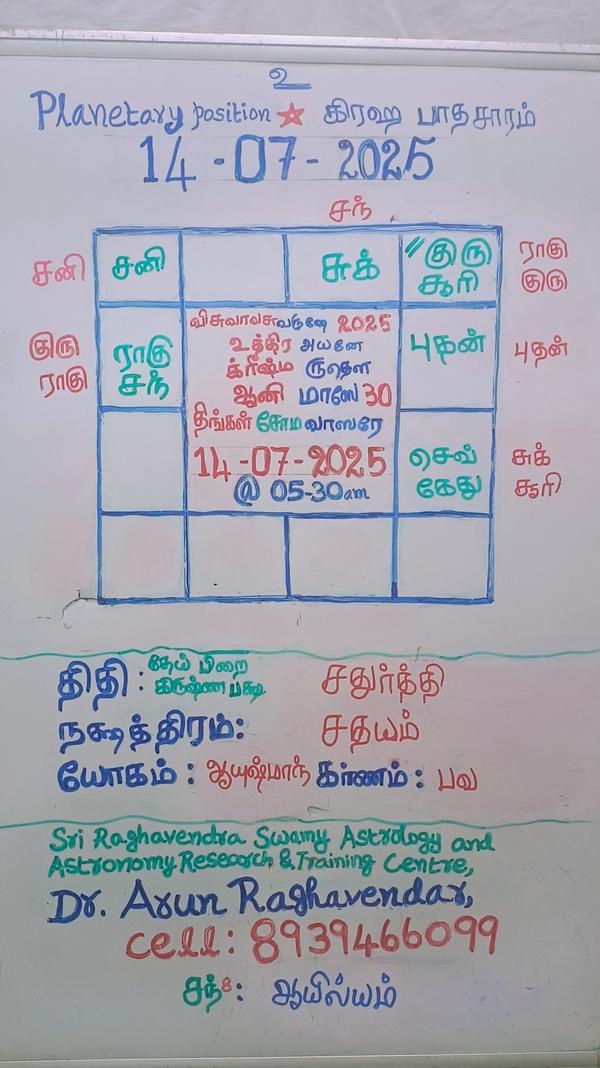 உ
Planetary position ☆ கிரஹ பாதசாரம்
14-07-2025
சந்
சனி சனி சுக் //குரு சூரி ராகு குரு
விசுவாவசுவருஷே 2025
உத்திர அயனே
குரு ராகு ராகு சந் க்ரீஷ்ம ருதௌ புதன் புதன்
ஆனி மாஸே 30
திங்கள் சோம வாஸரே
14-07-2025
@ 05-30am
செவ் கேது சுக் சூரி
திதி : தேய் பிறை கிருஷ்ண பக்ஷ சதுர்த்தி
நக்ஷத்திரம்: சதயம்
யோகம் : ஆயுஷ்மாந் கர்ணம் : பவ
Sri Raghavendra Swamy Astrology and
Astronomy Research & Training Centre,
Dr. Arun Raghavendar,
cell: 8939466099
சந்8: ஆயில்யம்